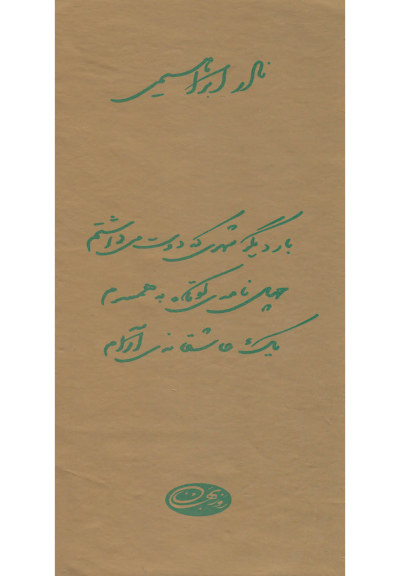 نادر ابراهیمی
بار دیگر شهری که دوست می داشتم
چهل نامه ی کوتاه به همسرم
یک عاشقانه ی آرام
روزبهان